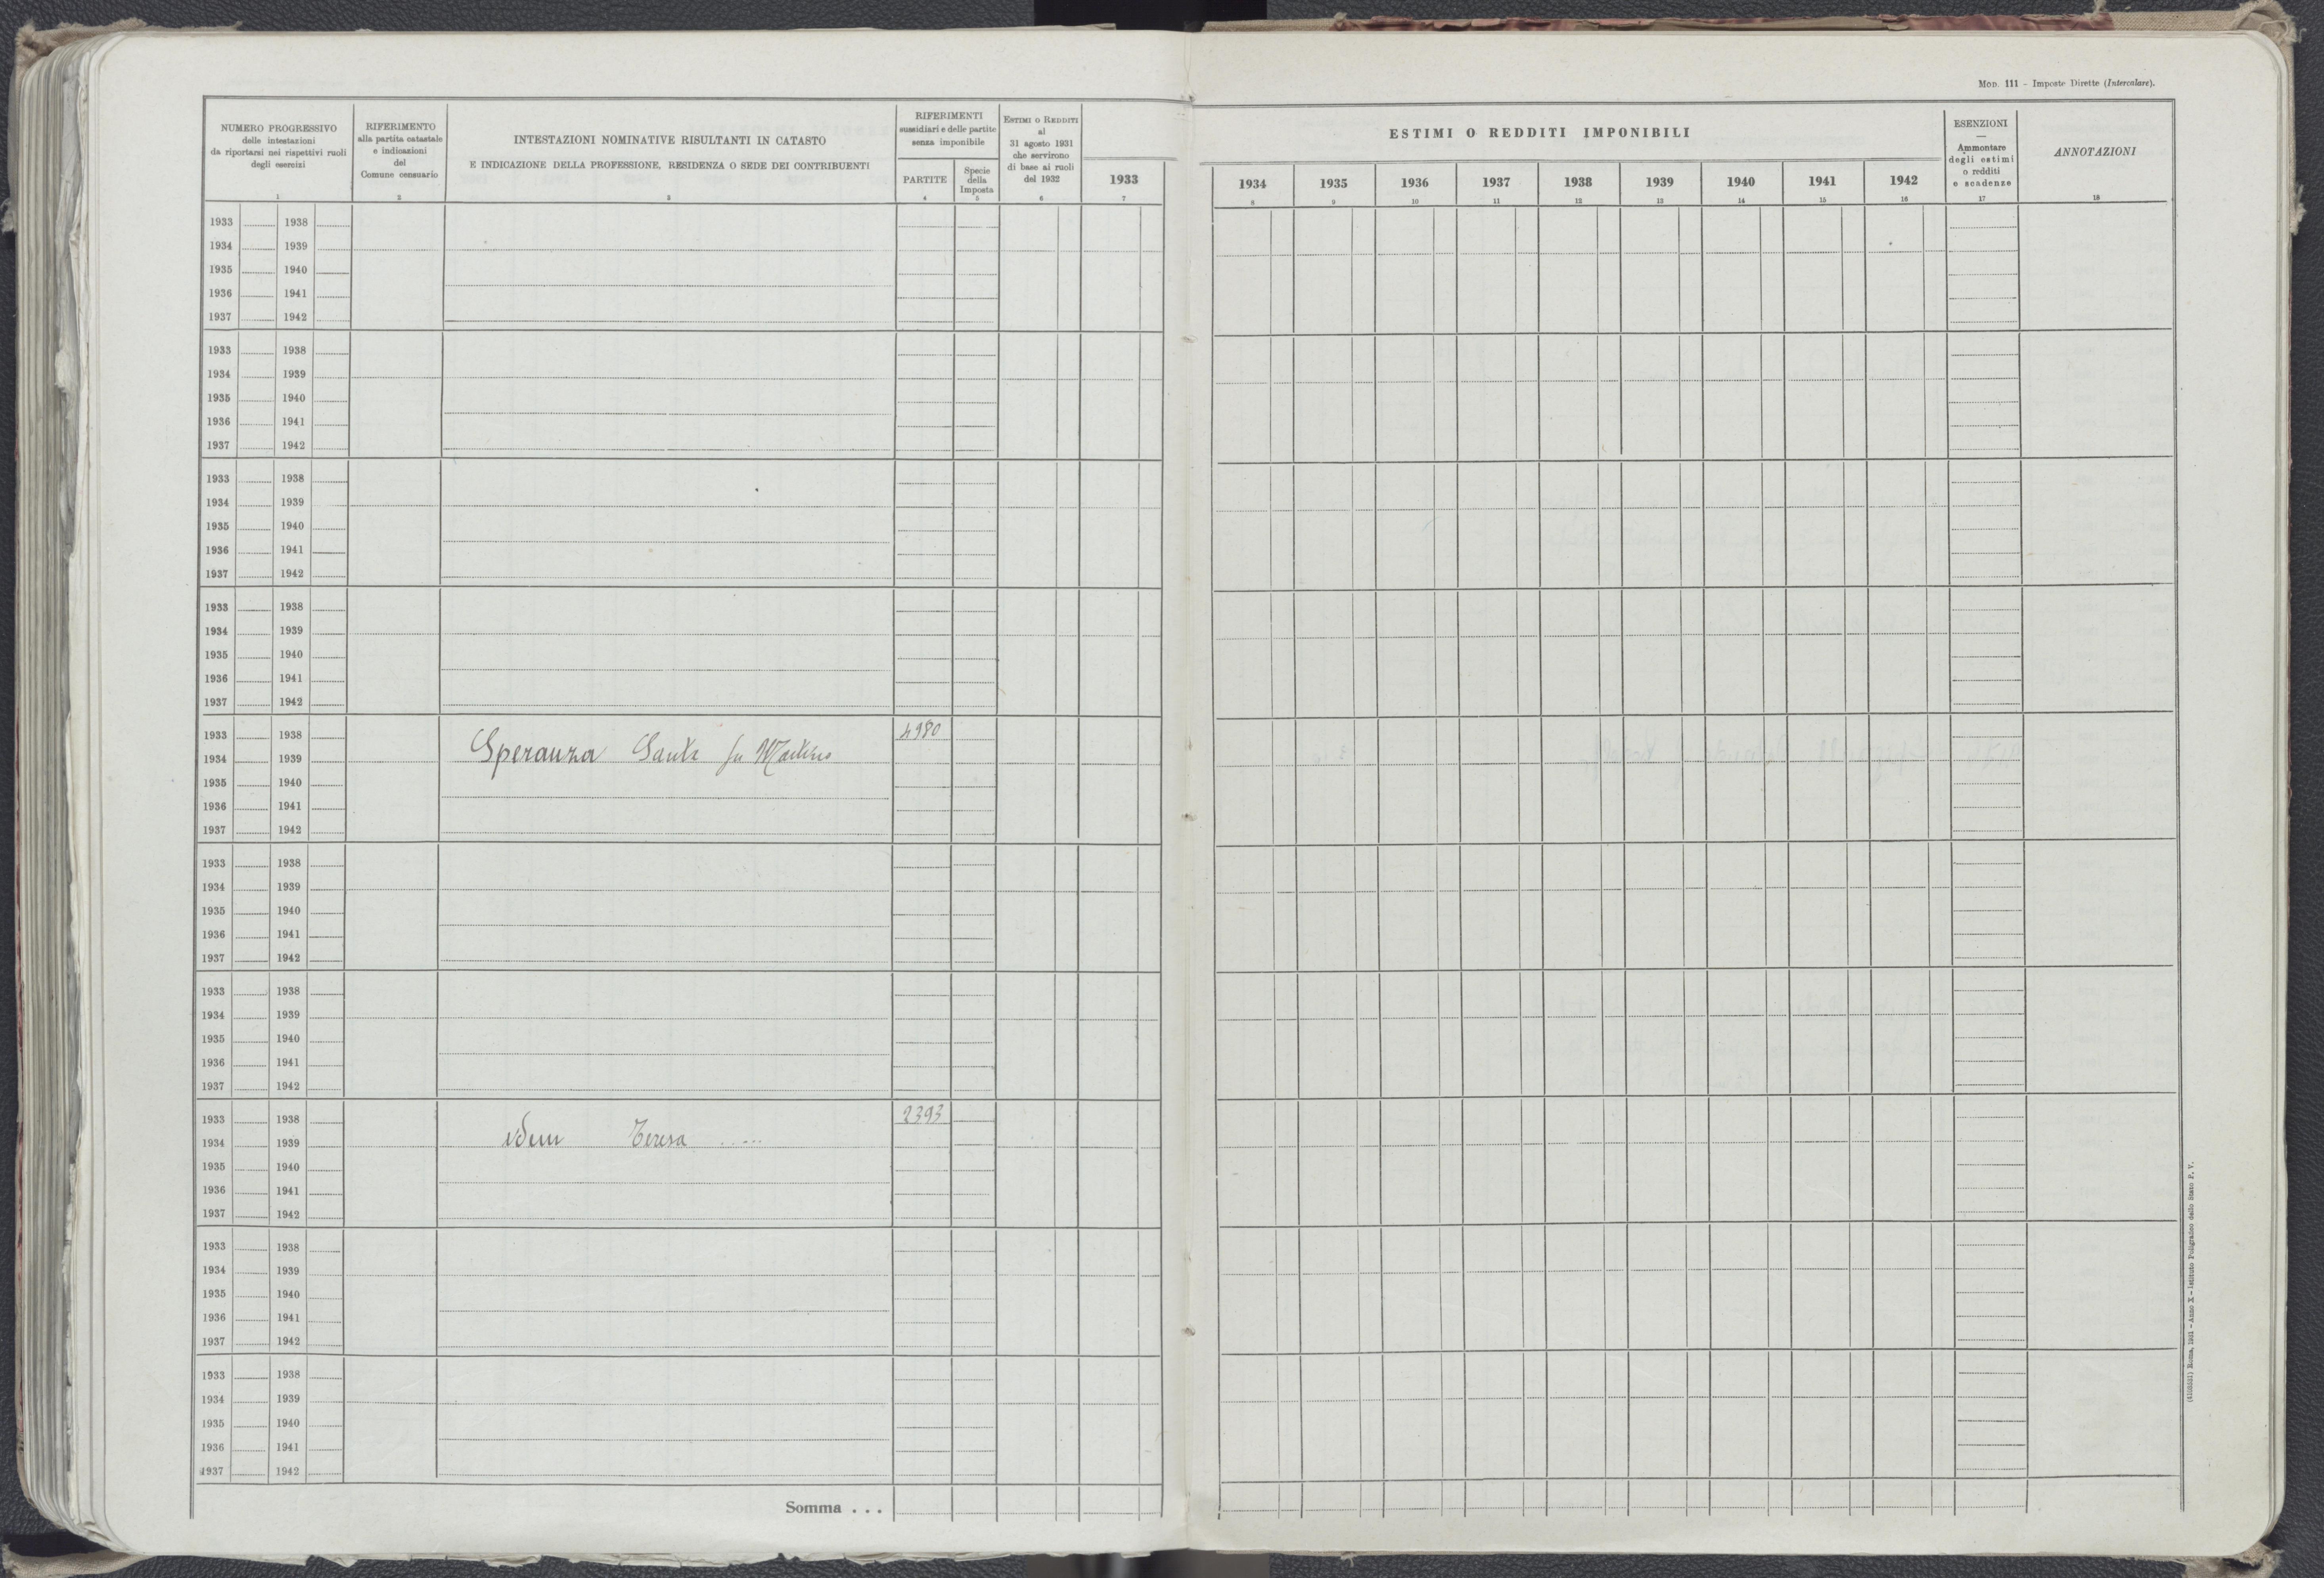 Mod. 111 - Imposte Dirette (Intercalare).
NUMERO PROGRESSIVO
delle intestazioni
da riportarsi nei rispettivi ruoli
degli esercizi
1
RIFERIMENTO
alla partita catastale
e indicazioni
del
Comune censuario
2
INTESTAZIONI NOMINATIVE RISULTANTI IN CATASTO
E INDICAZIONE DELLA PROFESSIONE, RESIDENZA O SEDE DEI CONTRIBUENTI
3
RIFERIMENTI
sussidiari e delle partite
senza imponibile
PARTITE
4
Specie
della
Imposta
5
ESTIMI O REDDITI
al
31 agosto 1931
che servirono
di base ai ruoli
del 1932
6
1933
7
ESTIMI O REDDITI IMPONIBILI
1934 1935 1936 1937 1938 1939 1940 1941 1942
8 9 10 11 12 13 14 15 16
ESENZIONI
—
Ammontare
degli estimi
o redditi
e scadenze
17
ANNOTAZIONI
18
1933 1938
1934 1939
1935 1940
1936 1941
1937 1942
1933 1938
1934 1939
1935 1940
1936 1941
1937 1942
1933 1938
1934 1939
1935 1940
1936 1941
1937 1942
1933 1938
1934 1939
1935 1940
1936 1941
1937 1942
1933 1938 4980
1934 1939 Speranza Santa fu Martino
1935 1940
1936 1941
1937 1942
1933 1938
1934 1939
1935 1940
1936 1941
1937 1942
1933 1938
1934 1939
1935 1940
1936 1941
1937 1942
1933 1938 2393
1934 1939 idem Teresa .....
1935 1940
1936 1941
1937 1942
1933 1938
1934 1939
1935 1940
1936 1941
1937 1942
1933 1938
1934 1939
1935 1940
1936 1941
1937 1942
Somma . . .
(4103551) Roma, 1931 - Anno X - Istituto Poligrafico dello Stato P. V.